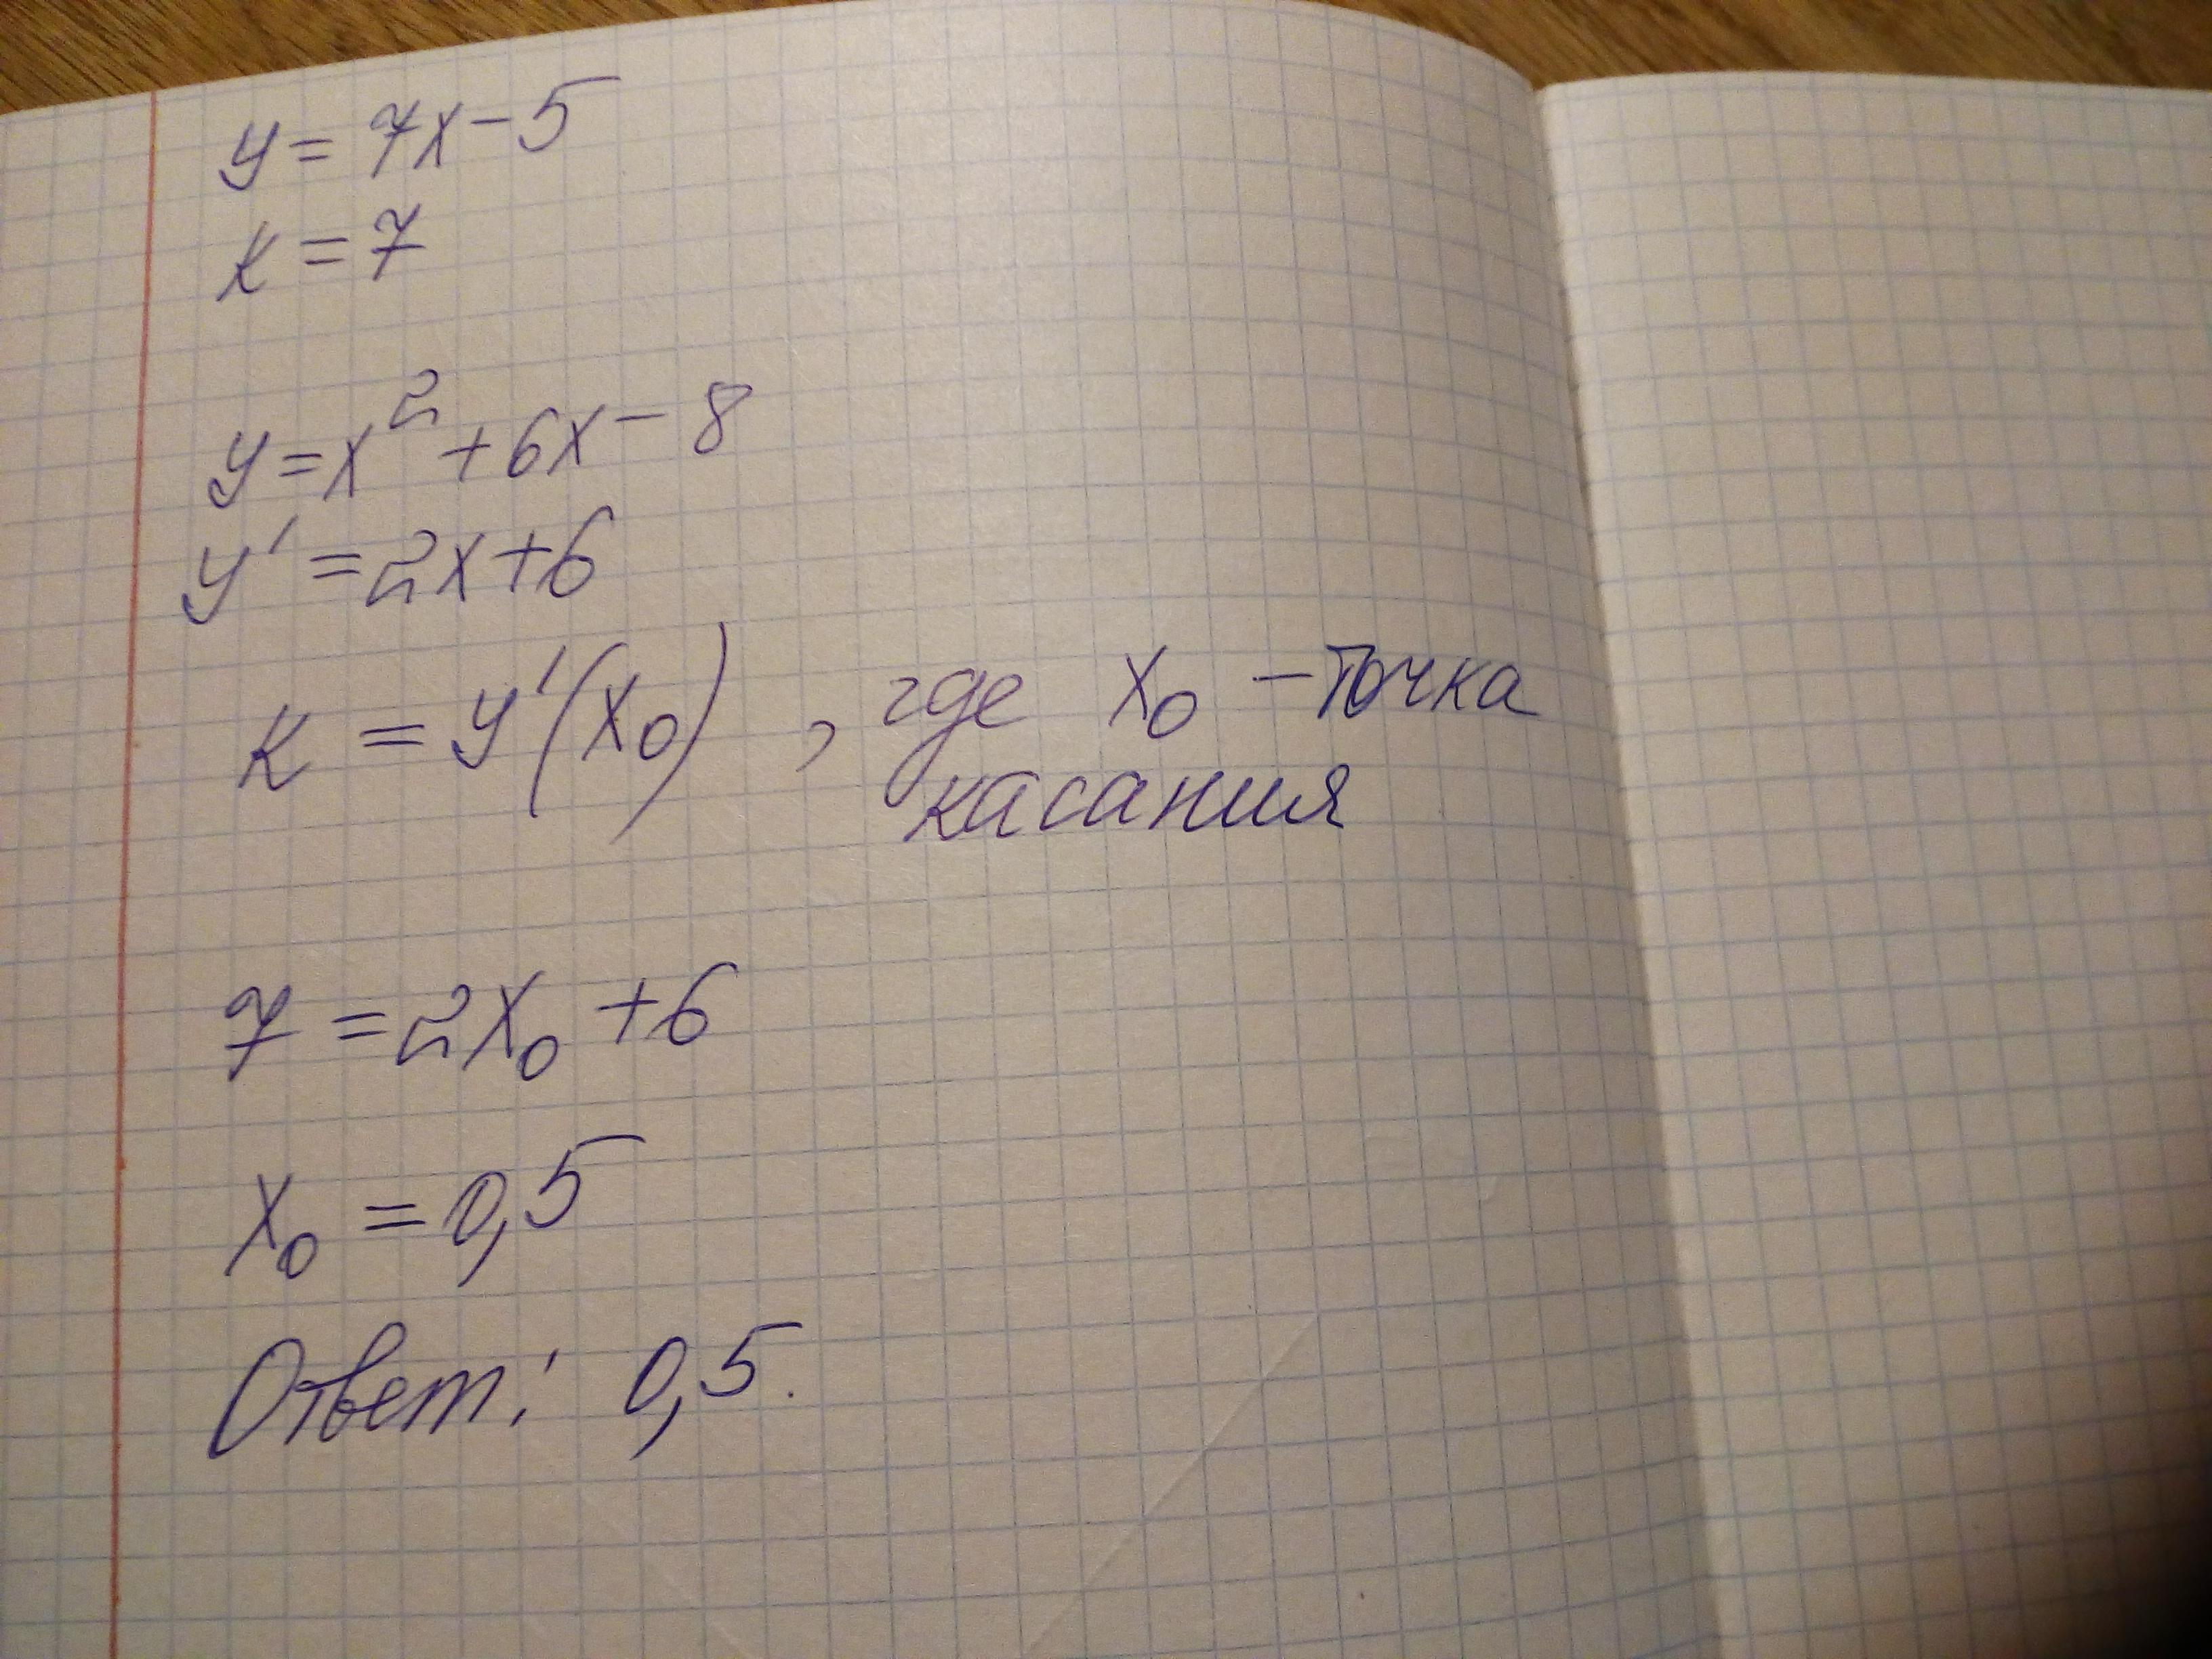 y = 7x - 5
k = 7
y = x² + 6x - 8
y' = 2x + 6
k = y'(x₀) , где x₀ - точка
касания
7 = 2x₀ + 6
x₀ = 0,5
Ответ: 0,5.